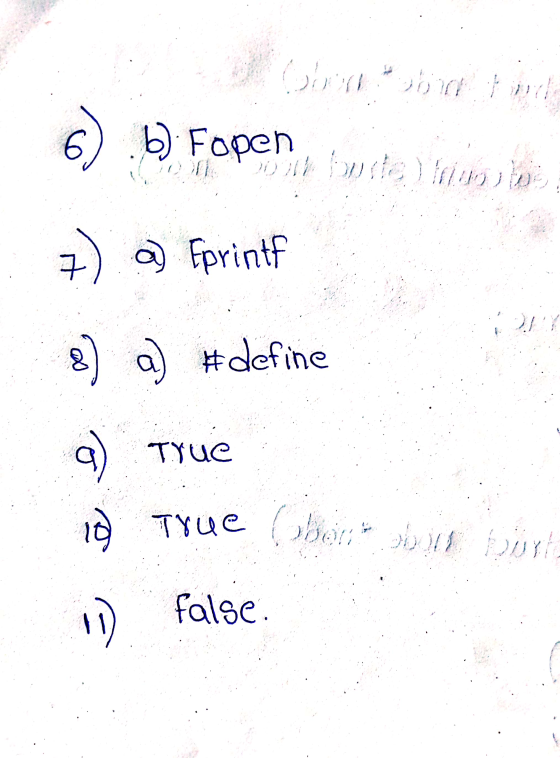 6) b) Fopen
7) a) Fprintf
8) a) #define
9) True
10) True
11) false.